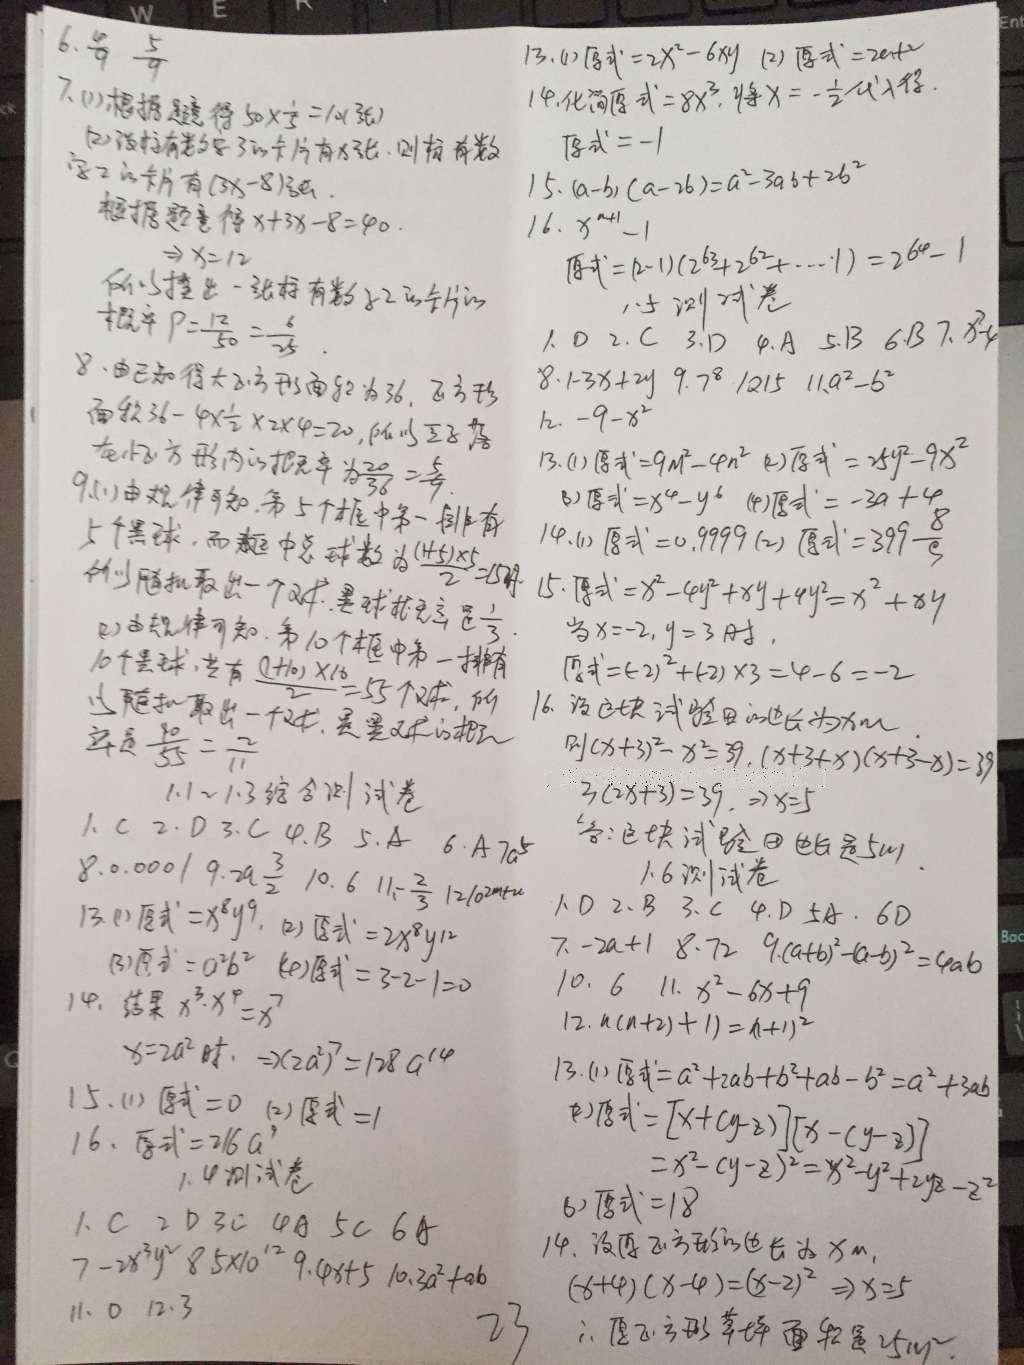 6. 4/9 5/9
7. (1) 根据题意得 50×1/5=10(张)
(2) 设标有数字3的卡片有x张, 则标有数
字2的卡片有(3x-8)张.
根据题意得 x+3x-8=40.
⇒x=12
所以摸出一张标有数字2的卡片的
概率 P=12/50=6/25.
8. 由已知得大正方形面积为36, 正方形
面积36-4×1/2×2×4=20, 所以豆子落
在小正方形内的概率为20/36=5/9.
9. (1) 由规律可知, 第5个框中第一排有
5个黑球, 而框中总球数为(1+5)×5/2=15
所以随机取出一个球, 黑球概率是1/3.
(2) 由规律可知, 第10个框中第一排有
10个黑球, 共有(1+10)×10/2=55个球, 所
以随机取出一个球, 是黑球的概
率是10/55=2/11
1.1~1.3综合测试卷
1. C 2. D 3. C 4. B 5. A 6. A 7. a⁵
8. 0.0001 9. 2a 3/2 10. 6 11. -2/3 12.
13. (1) 原式=x⁸y⁹. (2) 原式=2x⁸y¹²
(3) 原式=a²b² (4) 原式=3-2-1=0
14. 结果 x³·x⁴=x⁷
x=2a²时, ⇒(2a²)⁷=128a¹⁴
15. (1) 原式=0 (2) 原式=1
16. 原式=216a⁹
1.4测试卷
1. C 2 D 3 C 4 A 5 C 6 A
7 -2x³y² 8 5×10¹² 9. 4x+5 10. 3a²+ab
11. 0 12. 3
23
13. (1) 原式=2x²-6xy (2) 原式=2a+2
14. 化简原式=8x³, 将x=-1/2代入得.
原式=-1
15. (a-b)(a-2b)=a²-3ab+2b²
16. xⁿ⁺¹-1
原式=(2-1)(2⁶³+2⁶²+·····1)=2⁶⁴-1
1.5测试卷
1. D 2. C 3. D 4. A 5. B 6. B 7. x²-4
8. 1-3x+2y 9. 78 10 15 11. a²-b²
12. -9-x²
13. (1) 原式=9m²-4n² (2) 原式=25y²-9x²
(3) 原式=x⁴-y⁶ (4) 原式=-3a+4
14. (1) 原式=0.9999 (2) 原式=399 8/9
15. 原式=x²-4y²+xy+4y²=x²+xy
当x=-2, y=3时,
原式=(-2)²+(-2)×3=4-6=-2
16. 设这块试验田的边长为xm.
则(x+3)²-x²=39, (x+3+x)(x+3-x)=39
3(2x+3)=39, ⇒x=5
答: 这块试验田边长是5m.
1.6测试卷
1. D 2. B 3. C 4. D 5A. 6D
7. -2a+1 8. 72 9. (a+b)²-(a-b)²=4ab
10. 6 11. x²-6x+9
12. n(n+2)+1)=(n+1)²
13. (1) 原式=a²+2ab+b²+ab-b²=a²+3ab
(2) 原式=[x+(y-z)][x-(y-z)]
=x²-(y-z)²=x²-y²+2yz-z²
(3) 原式=18
14. 设原正方形的边长为xm,
(x+4)(x-4)=(x-2)² ⇒x=5
∴原正方形草坪面积是25m².